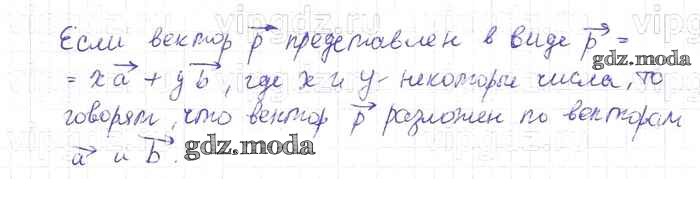 Если вектор p⃗ представлен в виде p⃗ =
= x a⃗ + y b⃗, где x и y - некоторые числа, то
говорят, что вектор p⃗ разложен по векторам
a⃗ и b⃗.
gdz.moda
gdz.moda
gdz.moda